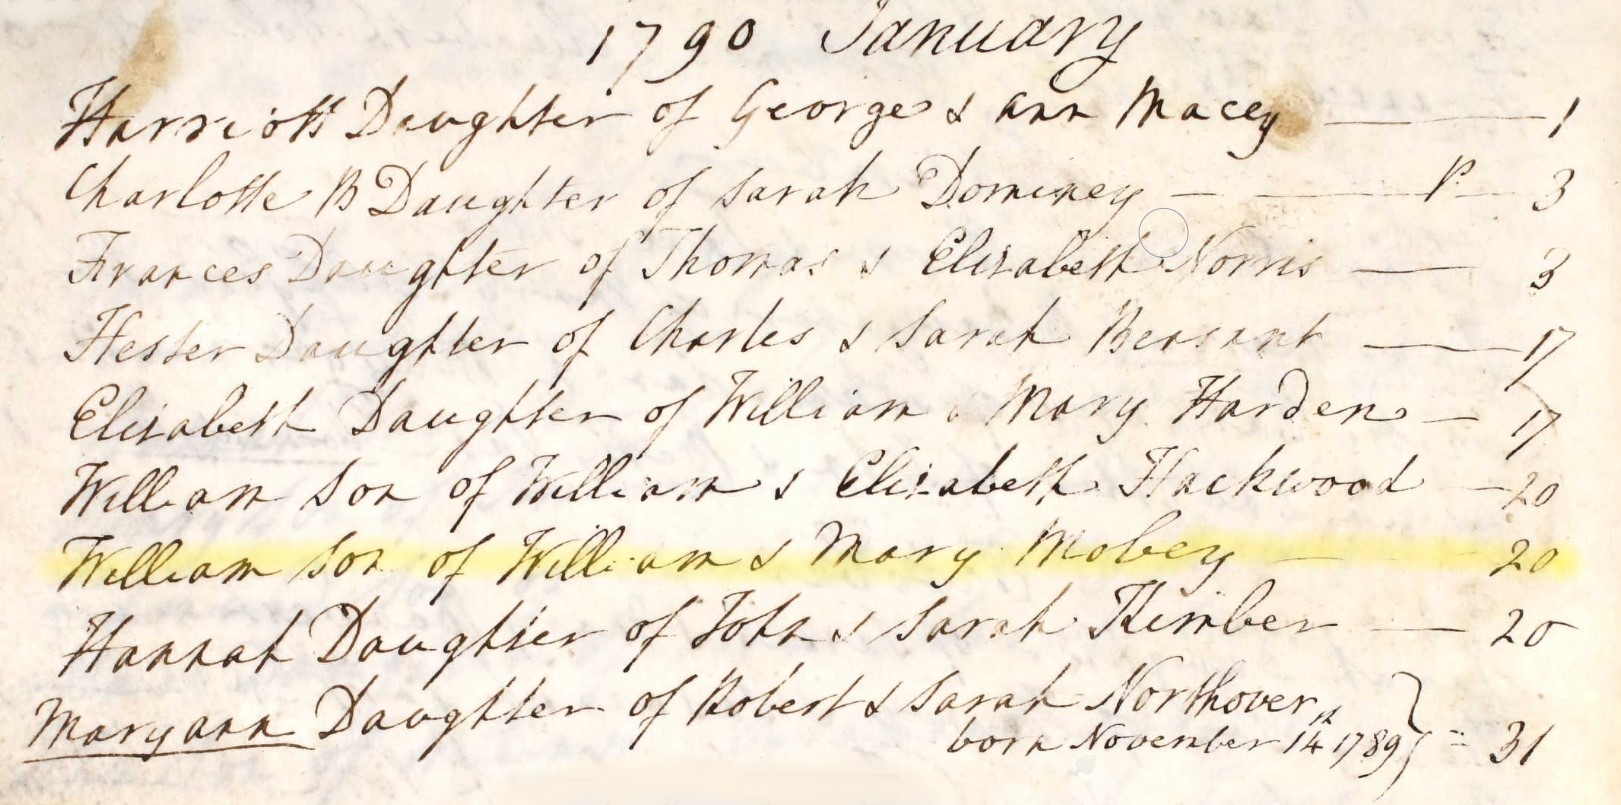 1790 January
Harriott Daughter of George & Ann Macey — 1
Charlotte B Daughter of Sarah Dominey — P. — 3
Frances Daughter of Thomas & Elizabeth Norris — 3
Hester Daughter of Charles & Sarah Bersant — 17
Elizabeth Daughter of William & Mary Harden — 17
William Son of William & Elizabeth Hackwood — 20
William Son of William & Mary Mobey — 20
Hannah Daughter of John & Sarah Kimber — 20
Maryann Daughter of Robert & Sarah Northover
born November 14th 1789 } = 31